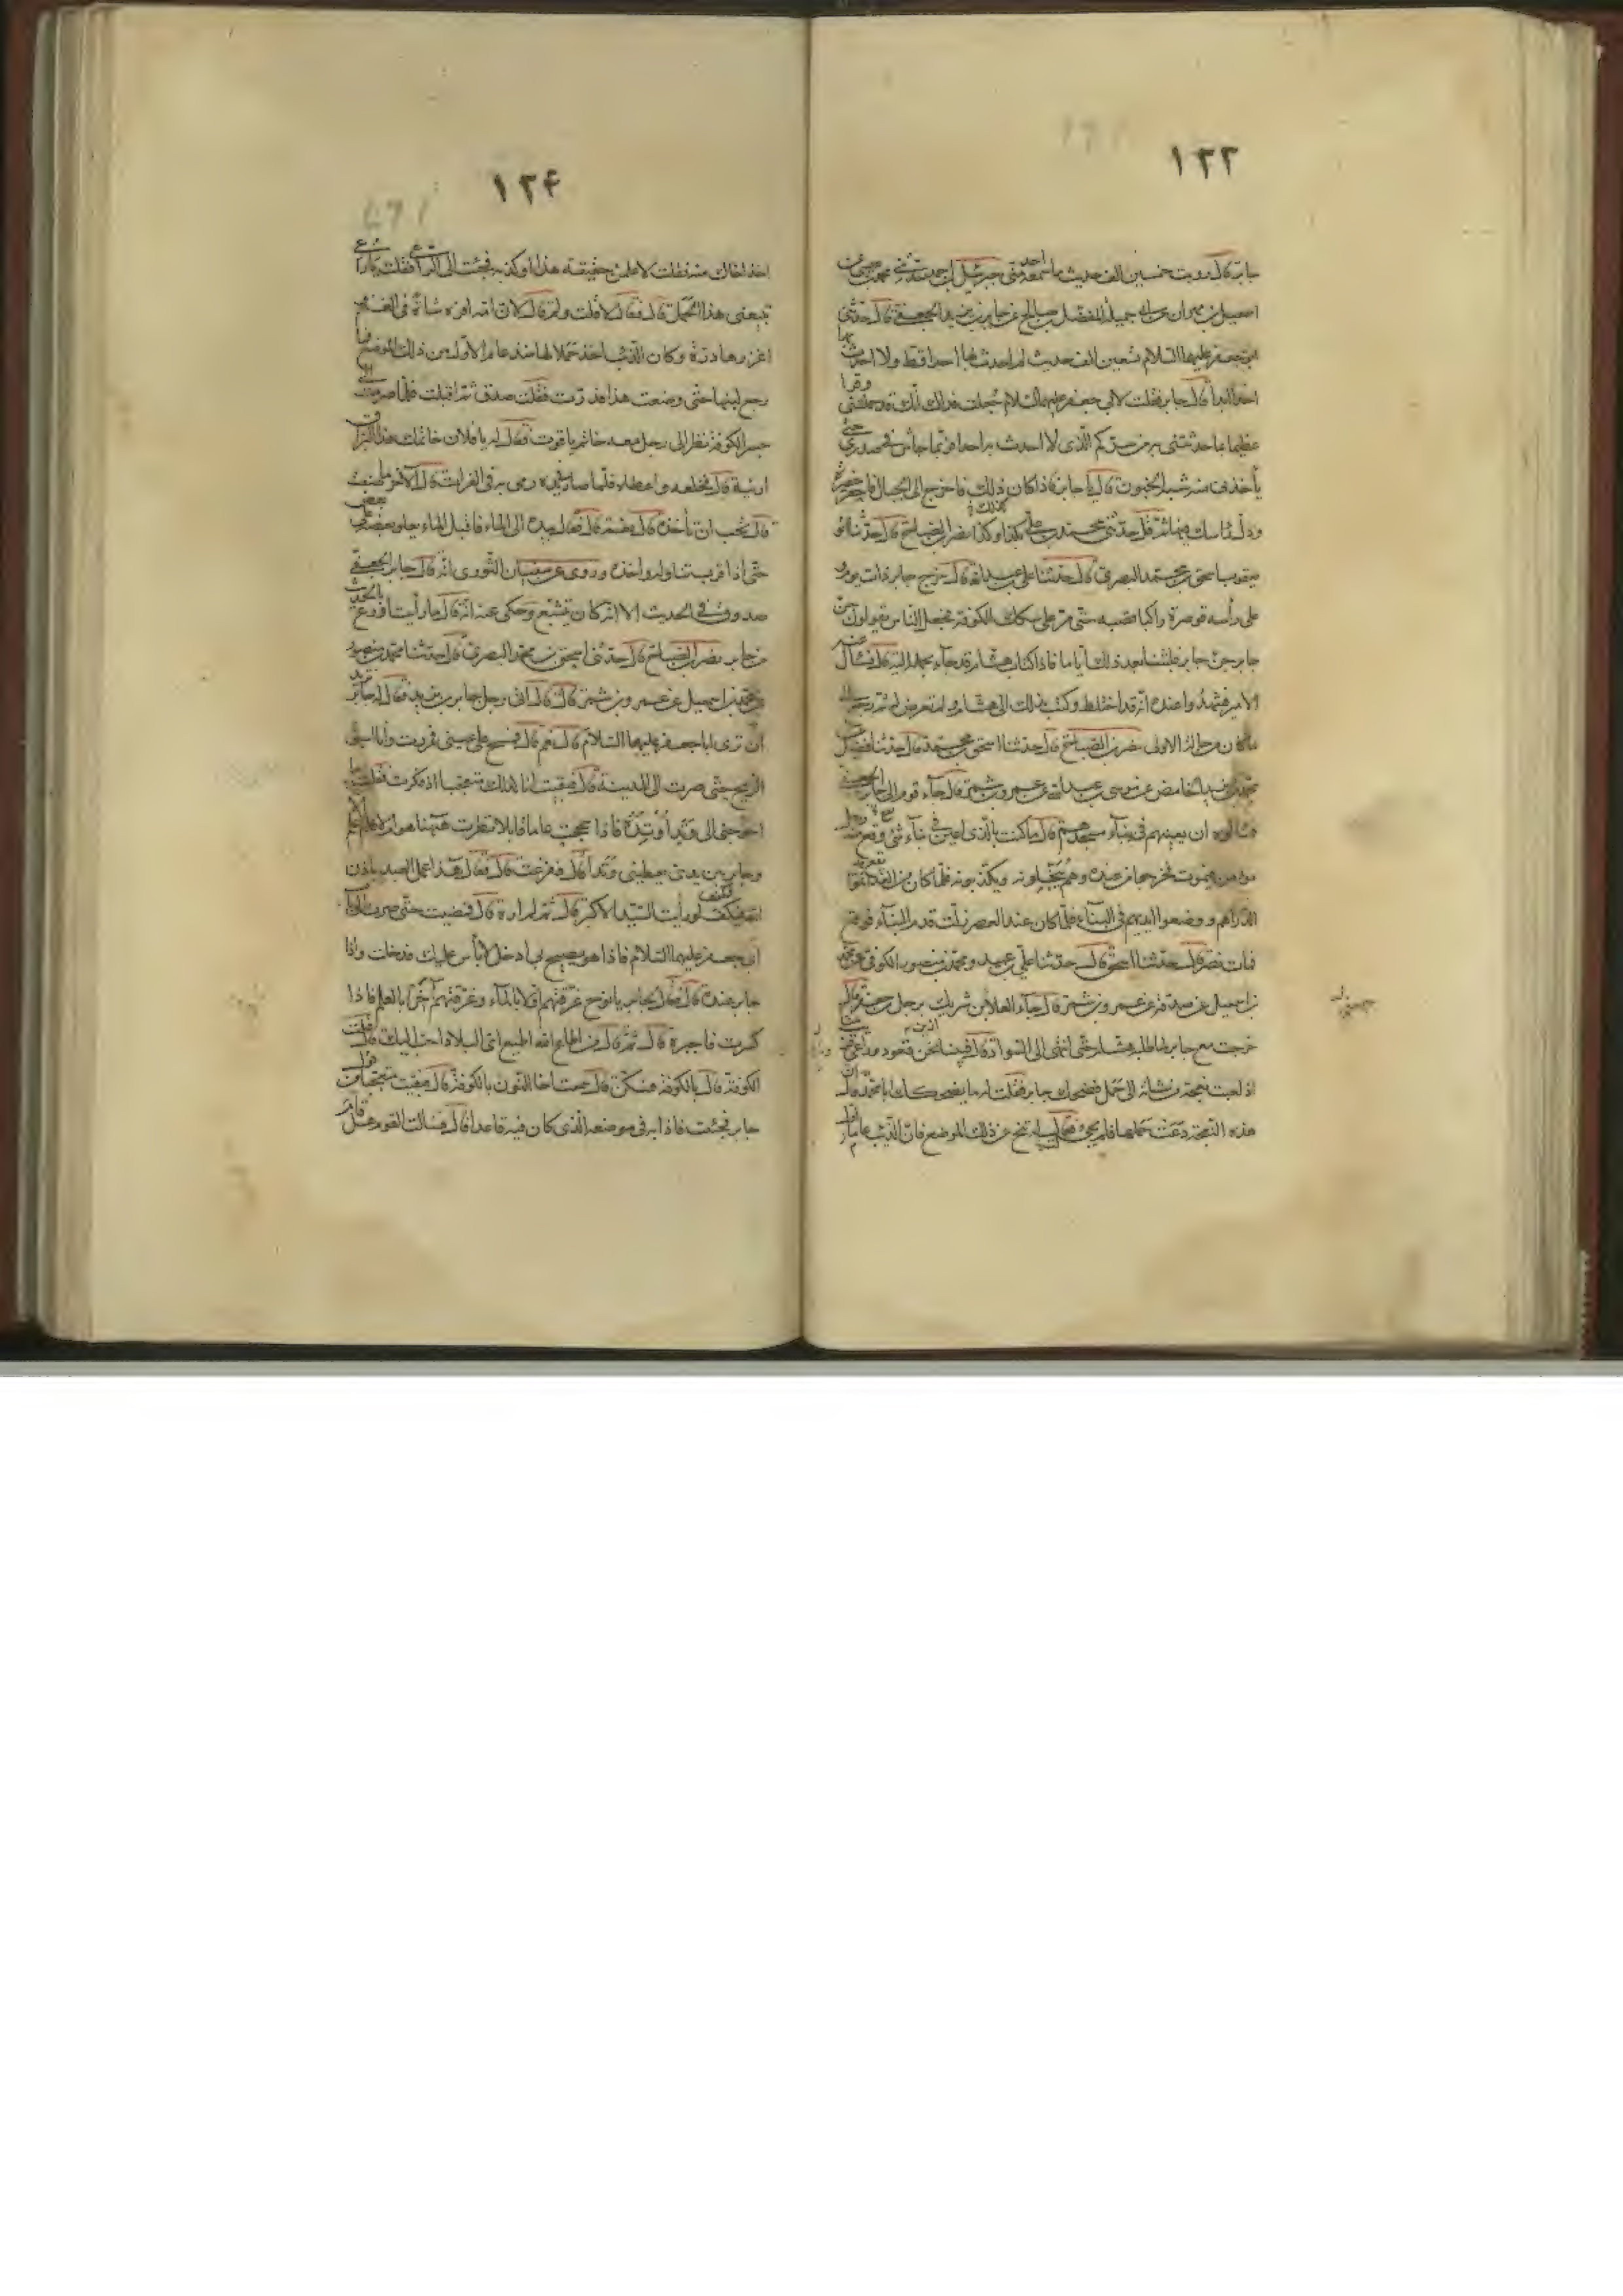 ١٢٣
جابر قال رويت خمسين الف حديث ما سمعه احد منى جبرئيل بن احمد حدثنى محمد بن عيسى عن
اسمعيل بن مهران عن ابى جميلة المفضل بن صالح عن جابر بن يزيد الجعفى قال حدثنى
ابو جعفر عليهما السلام تسعين الف حديث لم احدث بها احدا قط ولا احدث بها
احدا ابدا قال جابر فقلت لابى جعفر عليهما السلام جعلت فداك انك قد حملتنى وقرا
عظيما بما حدثتنى به من سركم الذى لا احدث به احدا فربما جاش فى صدرى حتى
يأخذنى منه شبه الجنون قال يا جابر فاذا كان ذلك فاخرج الى الجبال فاحفر حفيرة
ودل رأسك فيها ثم قل حدثنى محمد بن على بكذا وكذا نصر بن الصباح قال حدثنا ابو
يعقوب اسحق بن محمد البصرى قال حدثنا على بن عبد الله قال خرج جابر ذات يوم و
على رأسه قوصرة راكبا قصبة حتى مر على سكك الكوفة فجعل الناس يقولون جن
جابر جن جابر فلبثنا بعد ذلك اياما فاذا كتاب هشام قد جاء بحمله اليه قال فسأل عنه
الامير فشهدوا عنده انه قد اختلط وكتب بذلك الى هشام ولم يتعرض له ثم رجع الى
ما كان من حاله الاولى نصر بن الصباح قال حدثنا اسحق بن محمد قال حدثنا فضيل عن
محمد بن زيد الحامض عن موسى بن عبد الله عن عمرو بن شمر قال جاء قوم الى جابر الجعفى
فسألوه ان يعينهم فى بناء مسجدهم قال ما كنت بالذى اعين فى بناء شئ ويقع منه رجل
مؤمن فيموت فخرجوا من عنده وهم يبخلونه ويكذبونه فلما كان من الغد اتموا
الدراهم ووضعوا ايديهم فى البناء فلما كان عند العصر زلت قدم البناء فوقع
فمات نصر قال حدثنا اسحق قال حدثنا على بن عبيد ومحمد بن منصور الكوفى عن محمد
بن اسمعيل عن صدقة عن عمرو بن شمر قال جاء العلا بن شريك برجل من جعفى قال
خرجت مع جابر لما طلبه هشام حتى انتهى الى السواد قال فبينا نحن قعود وراعى قريب منا
اذ لعبت نعجة من شائه الى حمل فضحك جابر فقلت له ما يضحكك يا ابا محمد قال ان
هذه النعجة دعت حملها فلم يجئ فقالت له تنح عن ذلك الموضع فان الذئب عاما اول
١٢۴
اخذ اخاك منه فقلت لاعلمن حقيقة هذا او كذبه فجئت الى الراعى فقلت يا راعى
تبيعنى هذا الحمل قال فقال لا فقلت ولم قال لان امه افره شاة فى الغنم
اغزرها درة وكان الذئب اخذ حملا لها منذ عام الاول من ذلك الموضع فما
رجع لبنها حتى وضعت هذا فدرت فقلت صدق ثم اقبلت فلما صرت الى
جسر الكوفة نظر الى رجل معه خاتم ياقوت فقال له يا فلان خاتمك هذا البراق
ارنيه قال فخلعه واعطاه فلما صار فى يده رمى به فى الفرات قال الاخر ما صنعت
قال تحب ان تأخذه قال نعم قال فقال بيده الى الماء فاقبل الماء يعلو بعضه على بعض
حتى اذا قرب تناوله واخذه وروى عن سفيان الثورى انه قال جابر الجعفى
صدوق فى الحديث الا انه كان يتشيع وحكى عنه انه قال ما رأيت اورع بالحديث
من جابر نصر بن الصباح قال حدثنا اسحق بن محمد البصرى قال حدثنا محمد بن منصور
عن محمد بن اسمعيل عن عمرو بن شمر قال قال اتى رجل جابر بن يزيد فقال له جابر تريد
ان ترى ابا جعفر عليهما السلام قال نعم قال فمسح على عينى فمررت وانا اسبق
الريح حتى صرت الى المدينة قال فبقيت انا لذلك متعجبا اذ فكرت فقلت ما
احوجنى الى وتد اوتده فاذا حججت عاما قابلا نظرت ههنا هو ام لا فلم اعلم الا
وجابر بين يدى يعطينى وتدا قال ففزعت قال فقال هذا عمل العبد باذن
الله فكيف لو رأيت السيد الاكبر قال ثم لم اره قال فمضيت حتى صرت الى باب
ابى جعفر عليهما السلام فاذا هو يصيح بى ادخل لا بأس عليك فدخلت واذا
جابر عنده قال فقال لجابر يا نوح غرقتهم اولا بالماء وغرقتهم آخرا بالعلم فاذا
كسرت فاجبره قال ثم قال من اطاع الله اطيع اى البلاد احب اليك قال قلت
الكوفة قال بالكوفة فكن قال سمعت اخا النون بالكوفة قال فبقيت متعجبا من قول
جابر فجئت فاذا به فى موضعه الذى كان فيه قاعدا قال فسألت القوم هل قام